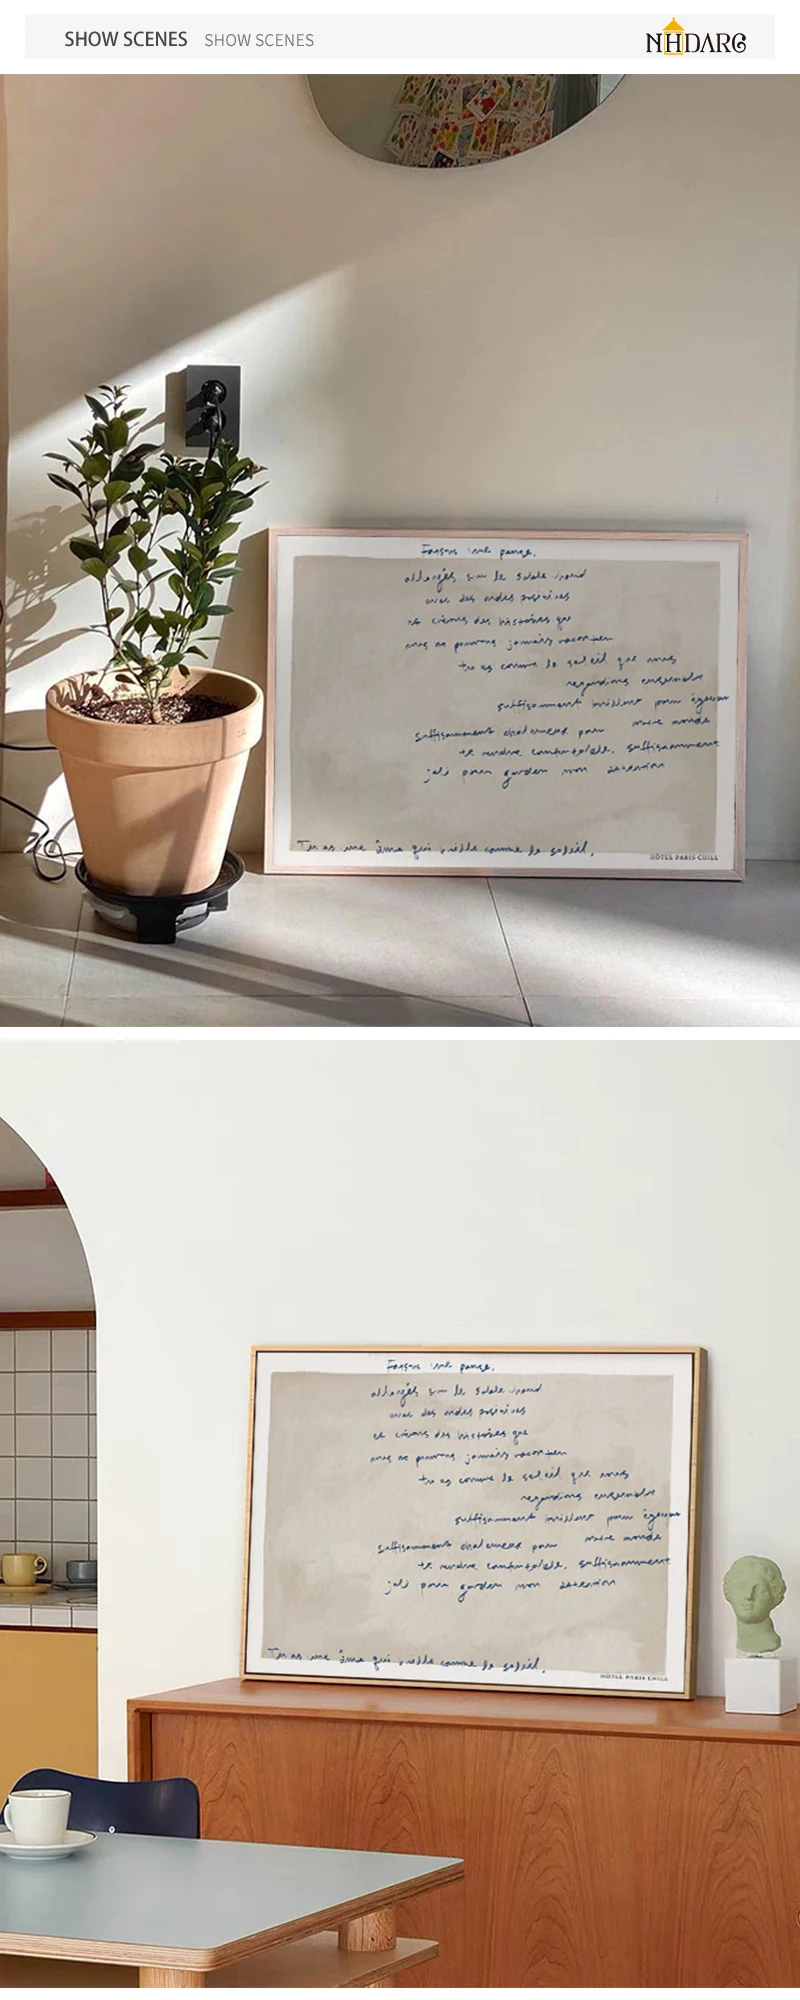 SHOW SCENES SHOW SCENES
NHDARG
Faisons une pause,
allongés sur le sable chaud
avec des ondes positives
et créons des histoires que
nous ne pouvons jamais raconter
tu es comme le soleil que nous
regardions ensemble
suffisamment brillant pour
suffisamment chaleureux pour notre monde
te rendre comfortable, suffisamment
joli pour garder mon attention
Tu as une âme qui brille comme le soleil,
HÔTEL PARIS CHILL
Faisons une pause,
allongés sur le sable chaud
avec des ondes positives
et créons des histoires que
nous ne pouvons jamais raconter
tu es comme le soleil que nous
regardions ensemble
suffisamment brillant pour
suffisamment chaleureux pour notre monde
te rendre comfortable, suffisamment
joli pour garder mon attention
Tu as une âme qui brille comme le soleil,
HÔTEL PARIS CHILL